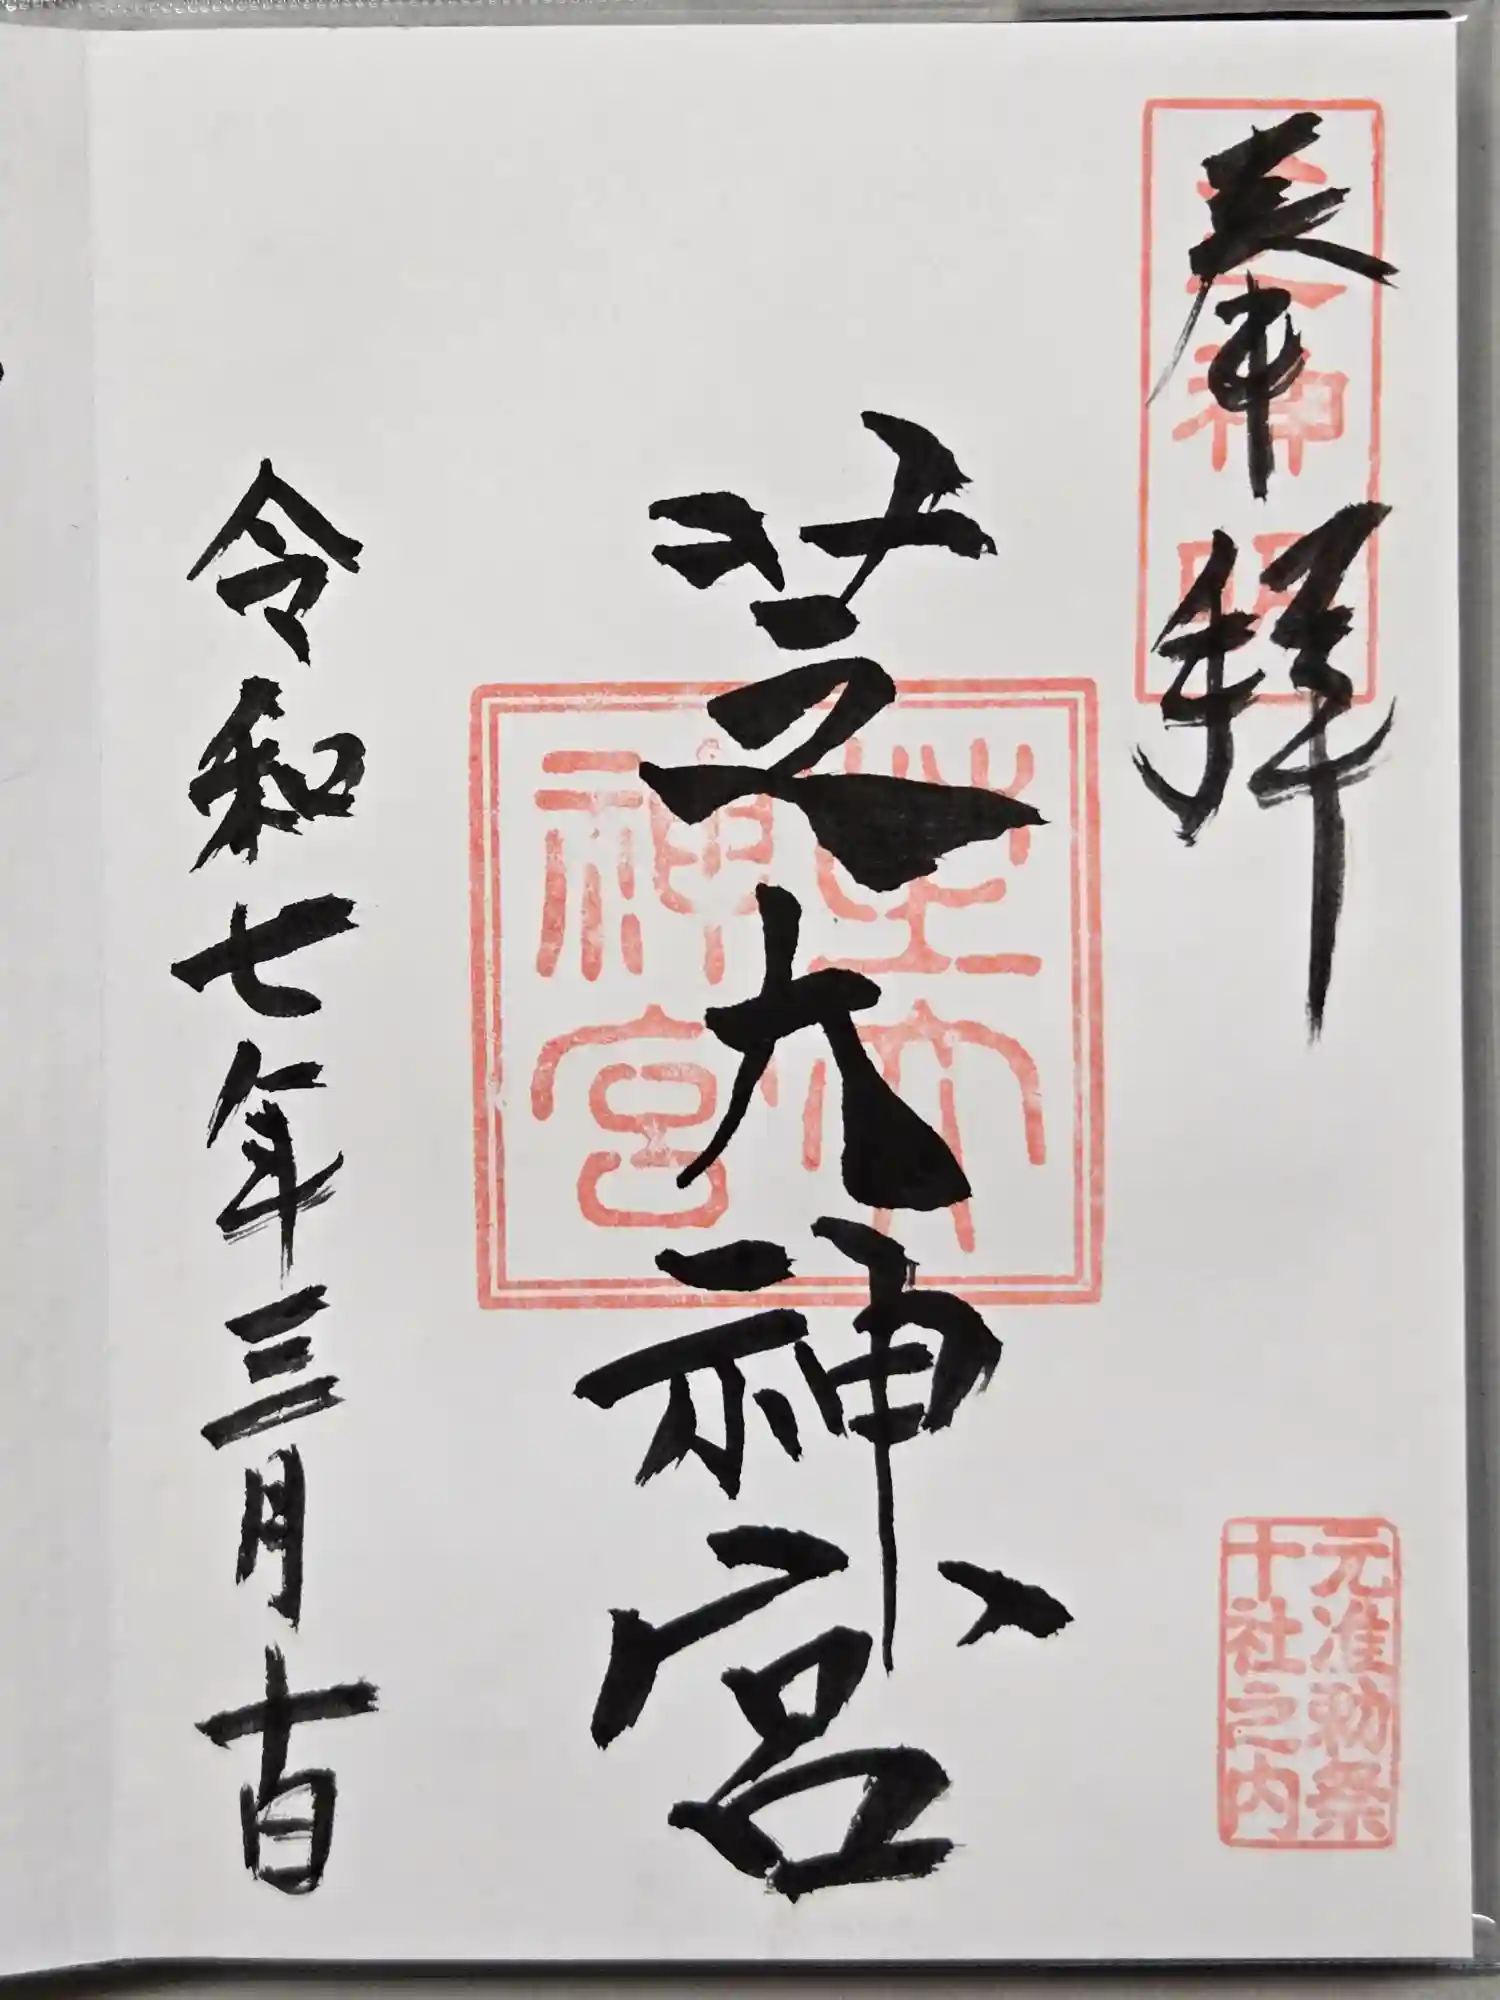 奉拝
神明
元准勅祭
十社之内
芝大神宮
芝大
神宮
令和七年三月十日